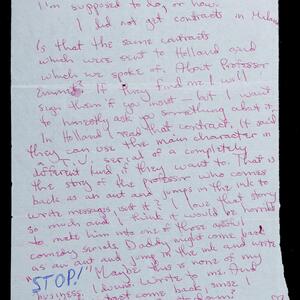 I'm supposed to do, or how.
I did not get contracts in
Is that the same contracts
which were sent to Holland and
which we spoke of. About Professor
If they find me I will
sign them if you must — but I want
to honestly ask you something about it.
In Holland I read that contract. It said
they can use the main character in
a T.V. serial of a completely
different kind, if they want to. That is
the story of the professor who comes
back as an ant and jumps in the ink to
write messages, isn't it? I love that story
so much and I think it would be horrid
to make him into one of those awful
comedy serials. Daddy might come back
as an ant and jump in the ink and write
"STOP!" Maybe this is none of my
business. I dunno. Write to me. And
come back, since I